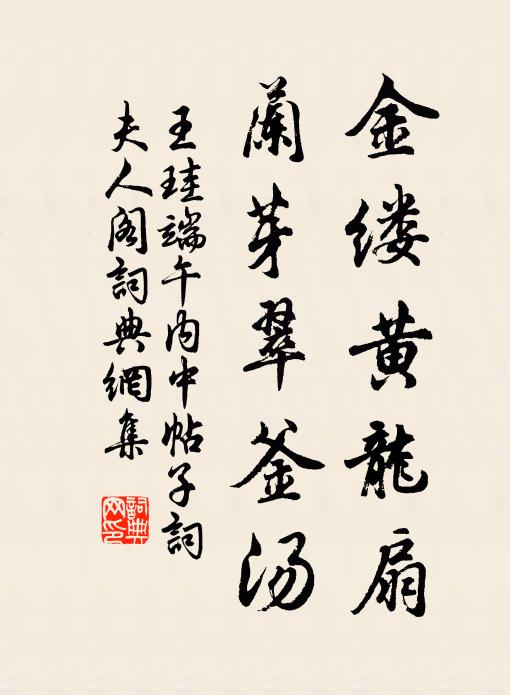 金缕黄龍扇
蘭芽翠釜汤
王珪端午内中帖子詞
夫人阁詞典網集
詞典
网印